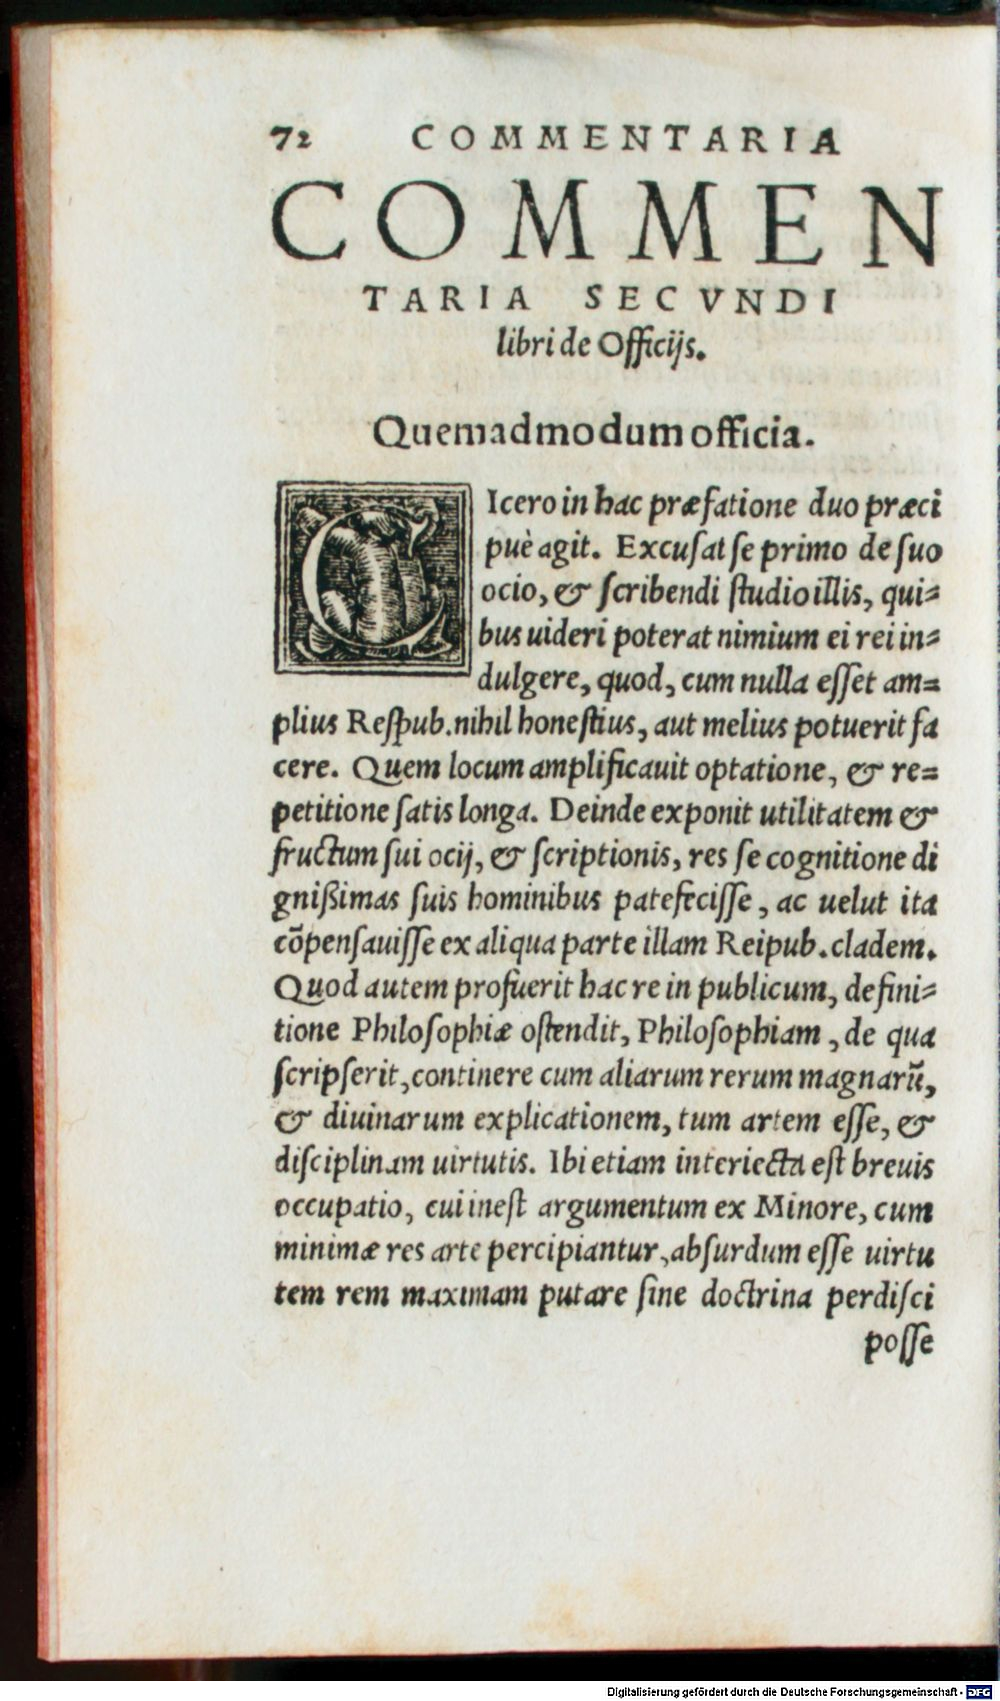 72 COMMENTARIA
COMMEN
TARIA SECVNDI
libri de Officijs.
Quemadmodum officia.
CIcero in hac præfatione duo præci
puè agit. Excuſat ſe primo de ſuo
ocio, & ſcribendi ſtudio illis, qui⸗
bus uideri poterat nimium ei rei in⸗
dulgere, quod, cum nulla eſſet am⸗
plius Reſpub. nihil honeſtius, aut melius potuerit fa
cere. Quem locum amplificauit optatione, & re⸗
petitione ſatis longa. Deinde exponit utilitatem &
fructum ſui ocij, & ſcriptionis, res ſe cognitione di
gnißimas ſuis hominibus patefeciſſe, ac uelut ita
cõpenſauiſſe ex aliqua parte illam Reipub. cladem.
Quod autem profuerit hac re in publicum, defini⸗
tione Philoſophiæ oſtendit, Philoſophiam, de qua
ſcripſerit, continere cum aliarum rerum magnarũ,
& diuinarum explicationem, tum artem eſſe, &
diſciplinam uirtutis. Ibi etiam interiecta eſt breuis
occupatio, cui ineſt argumentum ex Minore, cum
minimæ res arte percipiantur, abſurdum eſſe uirtu
tem rem maximam putare ſine doctrina perdiſci
poſſe
Digitalisierung gefördert durch die Deutsche Forschungsgemeinschaft - DFG